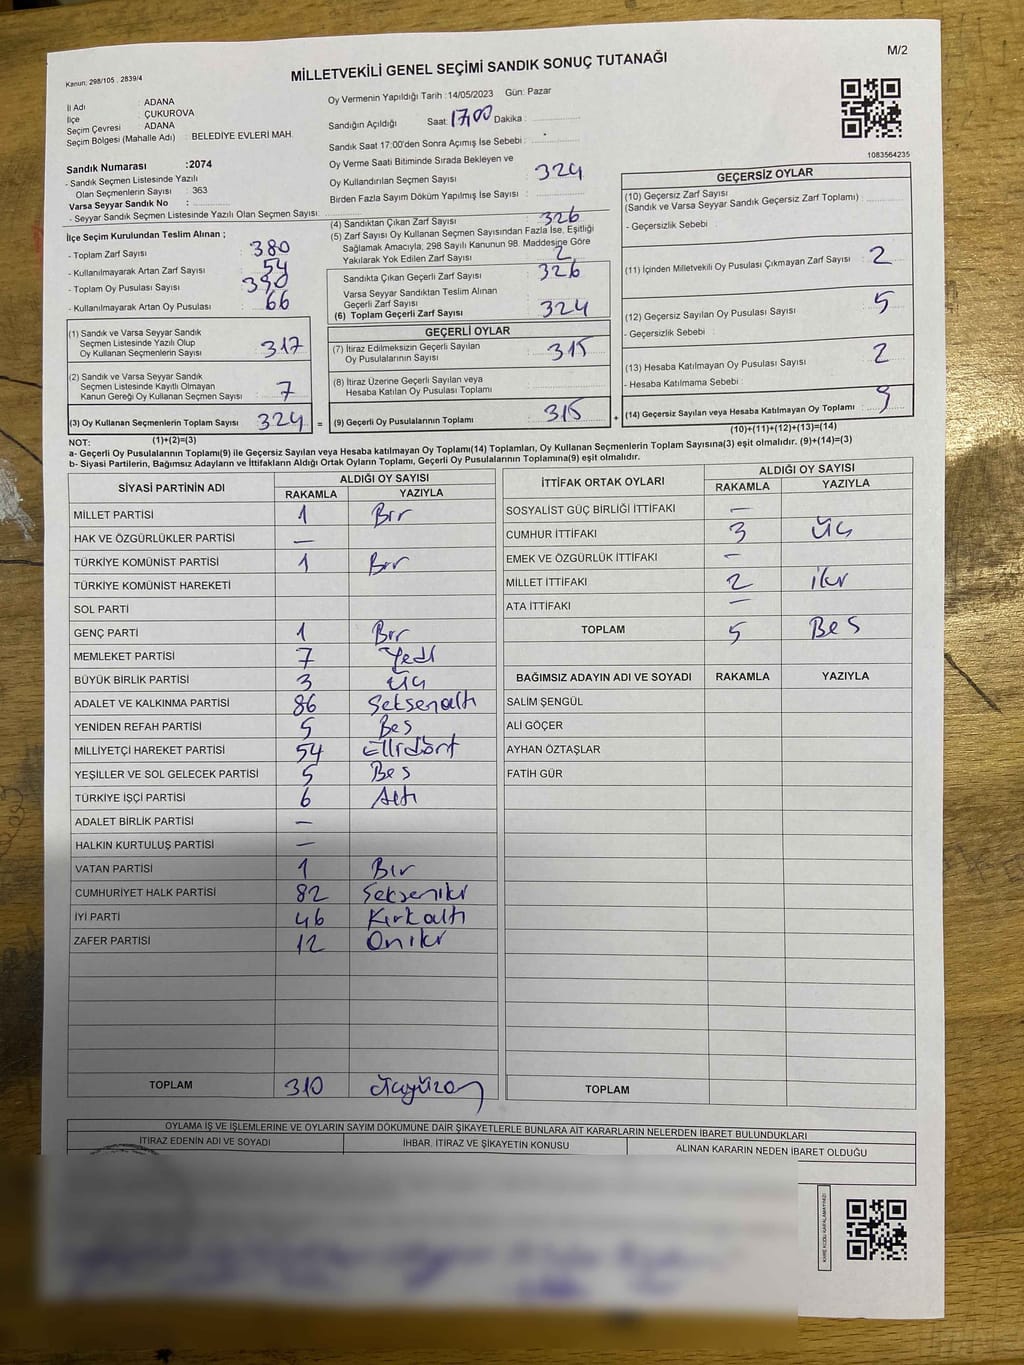 M/2
Kanun: 298/105 . 2839/4
MİLLETVEKİLİ GENEL SEÇİMİ SANDIK SONUÇ TUTANAĞI
İl Adı : ADANA
İlçe : ÇUKUROVA
Seçim Çevresi : ADANA
Seçim Bölgesi (Mahalle Adı) : BELEDİYE EVLERİ MAH.
Sandık Numarası :2074
- Sandık Seçmen Listesinde Yazılı
Olan Seçmenlerin Sayısı : 363
Varsa Seyyar Sandık No :
- Seyyar Sandık Seçmen Listesinde Yazılı Olan Seçmen Sayısı:
Oy Vermenin Yapıldığı Tarih : 14/05/2023 Gün: Pazar
Sandığın Açıldığı Saat: 17,00 Dakika :
Sandık Saat 17:00'den Sonra Açımış İse Sebebi :
Oy Verme Saati Bitiminde Sırada Bekleyen ve
Oy Kullandırılan Seçmen Sayısı : 324
Birden Fazla Sayım Döküm Yapılmış İse Sayısı :
1083564235
İlçe Seçim Kurulundan Teslim Alınan ;
- Toplam Zarf Sayısı : 380
- Kullanılmayarak Artan Zarf Sayısı : 54
- Toplam Oy Pusulası Sayısı : 390
- Kullanılmayarak Artan Oy Pusulası : 66
(1) Sandık ve Varsa Seyyar Sandık
Seçmen Listesinde Yazılı Olup
Oy Kullanan Seçmenlerin Sayısı : 317
(2) Sandık ve Varsa Seyyar Sandık
Seçmen Listesinde Kayıtlı Olmayan
Kanun Gereği Oy Kullanan Seçmen Sayısı : 7
(3) Oy Kullanan Seçmenlerin Toplam Sayısı : 324 =
(1)+(2)=(3)
(4) Sandıktan Çıkan Zarf Sayısı : 326
(5) Zarf Sayısı Oy Kullanan Seçmen Sayısından Fazla İse, Eşitliği
Sağlamak Amacıyla; 298 Sayılı Kanunun 98. Maddesine Göre
Yakılarak Yok Edilen Zarf Sayısı : 2
Sandıkta Çıkan Geçerli Zarf Sayısı : 326
Varsa Seyyar Sandıktan Teslim Alınan
Geçerli Zarf Sayısı :
(6) Toplam Geçerli Zarf Sayısı : 324
GEÇERLİ OYLAR
(7) İtiraz Edilmeksizin Geçerli Sayılan
Oy Pusulalarının Sayısı : 315
(8) İtiraz Üzerine Geçerli Sayılan veya
Hesaba Katılan Oy Pusulası Toplamı :
(9) Geçerli Oy Pusulalarının Toplamı : 315 +
GEÇERSİZ OYLAR
(10) Geçersiz Zarf Sayısı
(Sandık ve Varsa Seyyar Sandık Geçersiz Zarf Toplamı) :
- Geçersizlik Sebebi :
(11) İçinden Milletvekili Oy Pusulası Çıkmayan Zarf Sayısı : 2
(12) Geçersiz Sayılan Oy Pusulası Sayısı : 5
- Geçersizlik Sebebi :
(13) Hesaba Katılmayan Oy Pusulası Sayısı : 2
- Hesaba Katılmama Sebebi :
(14) Geçersiz Sayılan veya Hesaba Katılmayan Oy Toplamı : 9
(10)+(11)+(12)+(13)=(14)
NOT:
a- Geçerli Oy Pusulalarının Toplamı(9) ile Geçersiz Sayılan veya Hesaba katılmayan Oy Toplamı(14) Toplamları, Oy Kullanan Seçmenlerin Toplam Sayısına(3) eşit olmalıdır. (9)+(14)=(3)
b- Siyasi Partilerin, Bağımsız Adayların ve İttifakların Aldığı Ortak Oyların Toplamı, Geçerli Oy Pusulalarının Toplamına(9) eşit olmalıdır.
SİYASİ PARTİNİN ADI ALDIĞI OY SAYISI
RAKAMLA YAZIYLA
MİLLET PARTİSİ 1 Bir
HAK VE ÖZGÜRLÜKLER PARTİSİ —
TÜRKİYE KOMÜNİST PARTİSİ 1 Bir
TÜRKİYE KOMÜNİST HAREKETİ
SOL PARTİ
GENÇ PARTİ 1 Bir
MEMLEKET PARTİSİ 7 Yedi
BÜYÜK BİRLİK PARTİSİ 3 Üç
ADALET VE KALKINMA PARTİSİ 86 Seksenaltı
YENİDEN REFAH PARTİSİ 5 Bes
MİLLİYETÇİ HAREKET PARTİSİ 54 Ellidört
YEŞİLLER VE SOL GELECEK PARTİSİ 5 Bes
TÜRKİYE İŞÇİ PARTİSİ 6 Altı
ADALET BİRLİK PARTİSİ —
HALKIN KURTULUŞ PARTİSİ —
VATAN PARTİSİ 1 Bir
CUMHURİYET HALK PARTİSİ 82 Sekseniki
İYİ PARTİ 46 Kırkaltı
ZAFER PARTİSİ 12 Oniki
TOPLAM 310 Üçyüzon
İTTİFAK ORTAK OYLARI ALDIĞI OY SAYISI
RAKAMLA YAZIYLA
SOSYALİST GÜÇ BİRLİĞİ İTTİFAKI —
CUMHUR İTTİFAKI 3 Üç
EMEK VE ÖZGÜRLÜK İTTİFAKI —
MİLLET İTTİFAKI 2 iki
ATA İTTİFAKI —
TOPLAM 5 Bes
BAĞIMSIZ ADAYIN ADI VE SOYADI RAKAMLA YAZIYLA
SALİM ŞENGÜL
ALİ GÖÇER
AYHAN ÖZTAŞLAR
FATİH GÜR
TOPLAM
OYLAMA İŞ VE İŞLEMLERİNE VE OYLARIN SAYIM DÖKÜMÜNE DAİR ŞİKAYETLERLE BUNLARA AİT KARARLARIN NELERDEN İBARET BULUNDUKLARI
İTİRAZ EDENİN ADI VE SOYADI İHBAR. İTİRAZ VE ŞİKAYETİN KONUSU ALINAN KARARIN NEDEN İBARET OLDUĞU
KARE KODU KARALAMAYINIZ!